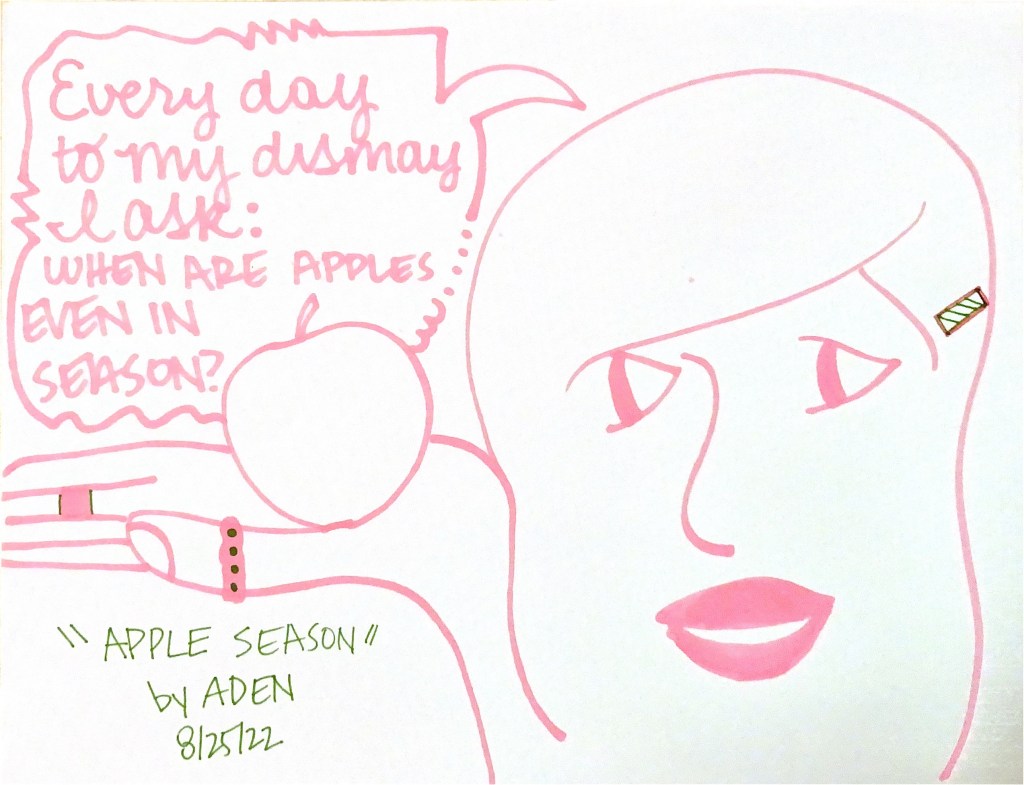 Every day
to my dismay
I ask:
WHEN ARE APPLES
EVEN IN
SEASON?
"APPLE SEASON"
by ADEN
8/25/22